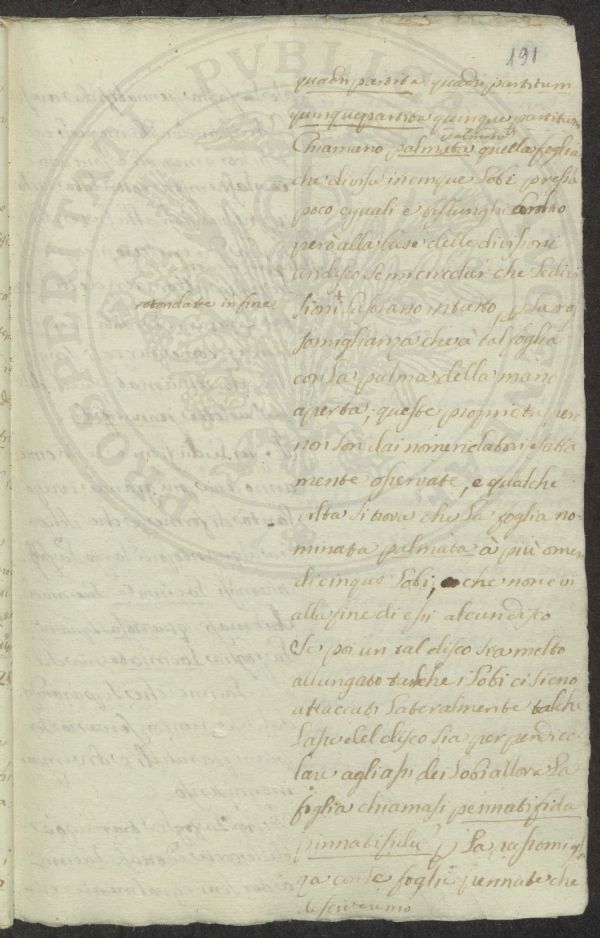 191
quadripartita quadripartitum
quinquepartita quinque partitum
palmatum
Chiamano palmata quella foglia
che divisa in cinque Lobi presso a
poco eguali e bislunghi anno
però alla base delle divisioni
un disco semicircolar che le divi
rotondate in fine
sioni si sapiano intatto, p la ras
somiglianza che à tal foglia
con la palma della mano
aperta; queste proprietà, però
non son dai nomenclatori esatta
mente osservate, e qualche
volta si trova che la foglia no
minata palmata à più o men
di cinque Lobi; o che non evi
alla fine di essi alcun disco
Se poi un tal disco sia molto
allungato talche i Lobi ci sieno
attaccati Lateralmente talche
L'asse del disco sia perpendico
lare agli assi dei Lobi allora La
foglia chiamasi pennatifida
pinnatifidu p La rassomiglian
za con le foglie pennate che
descriveremo
PROSPERITATI PUBLICAE